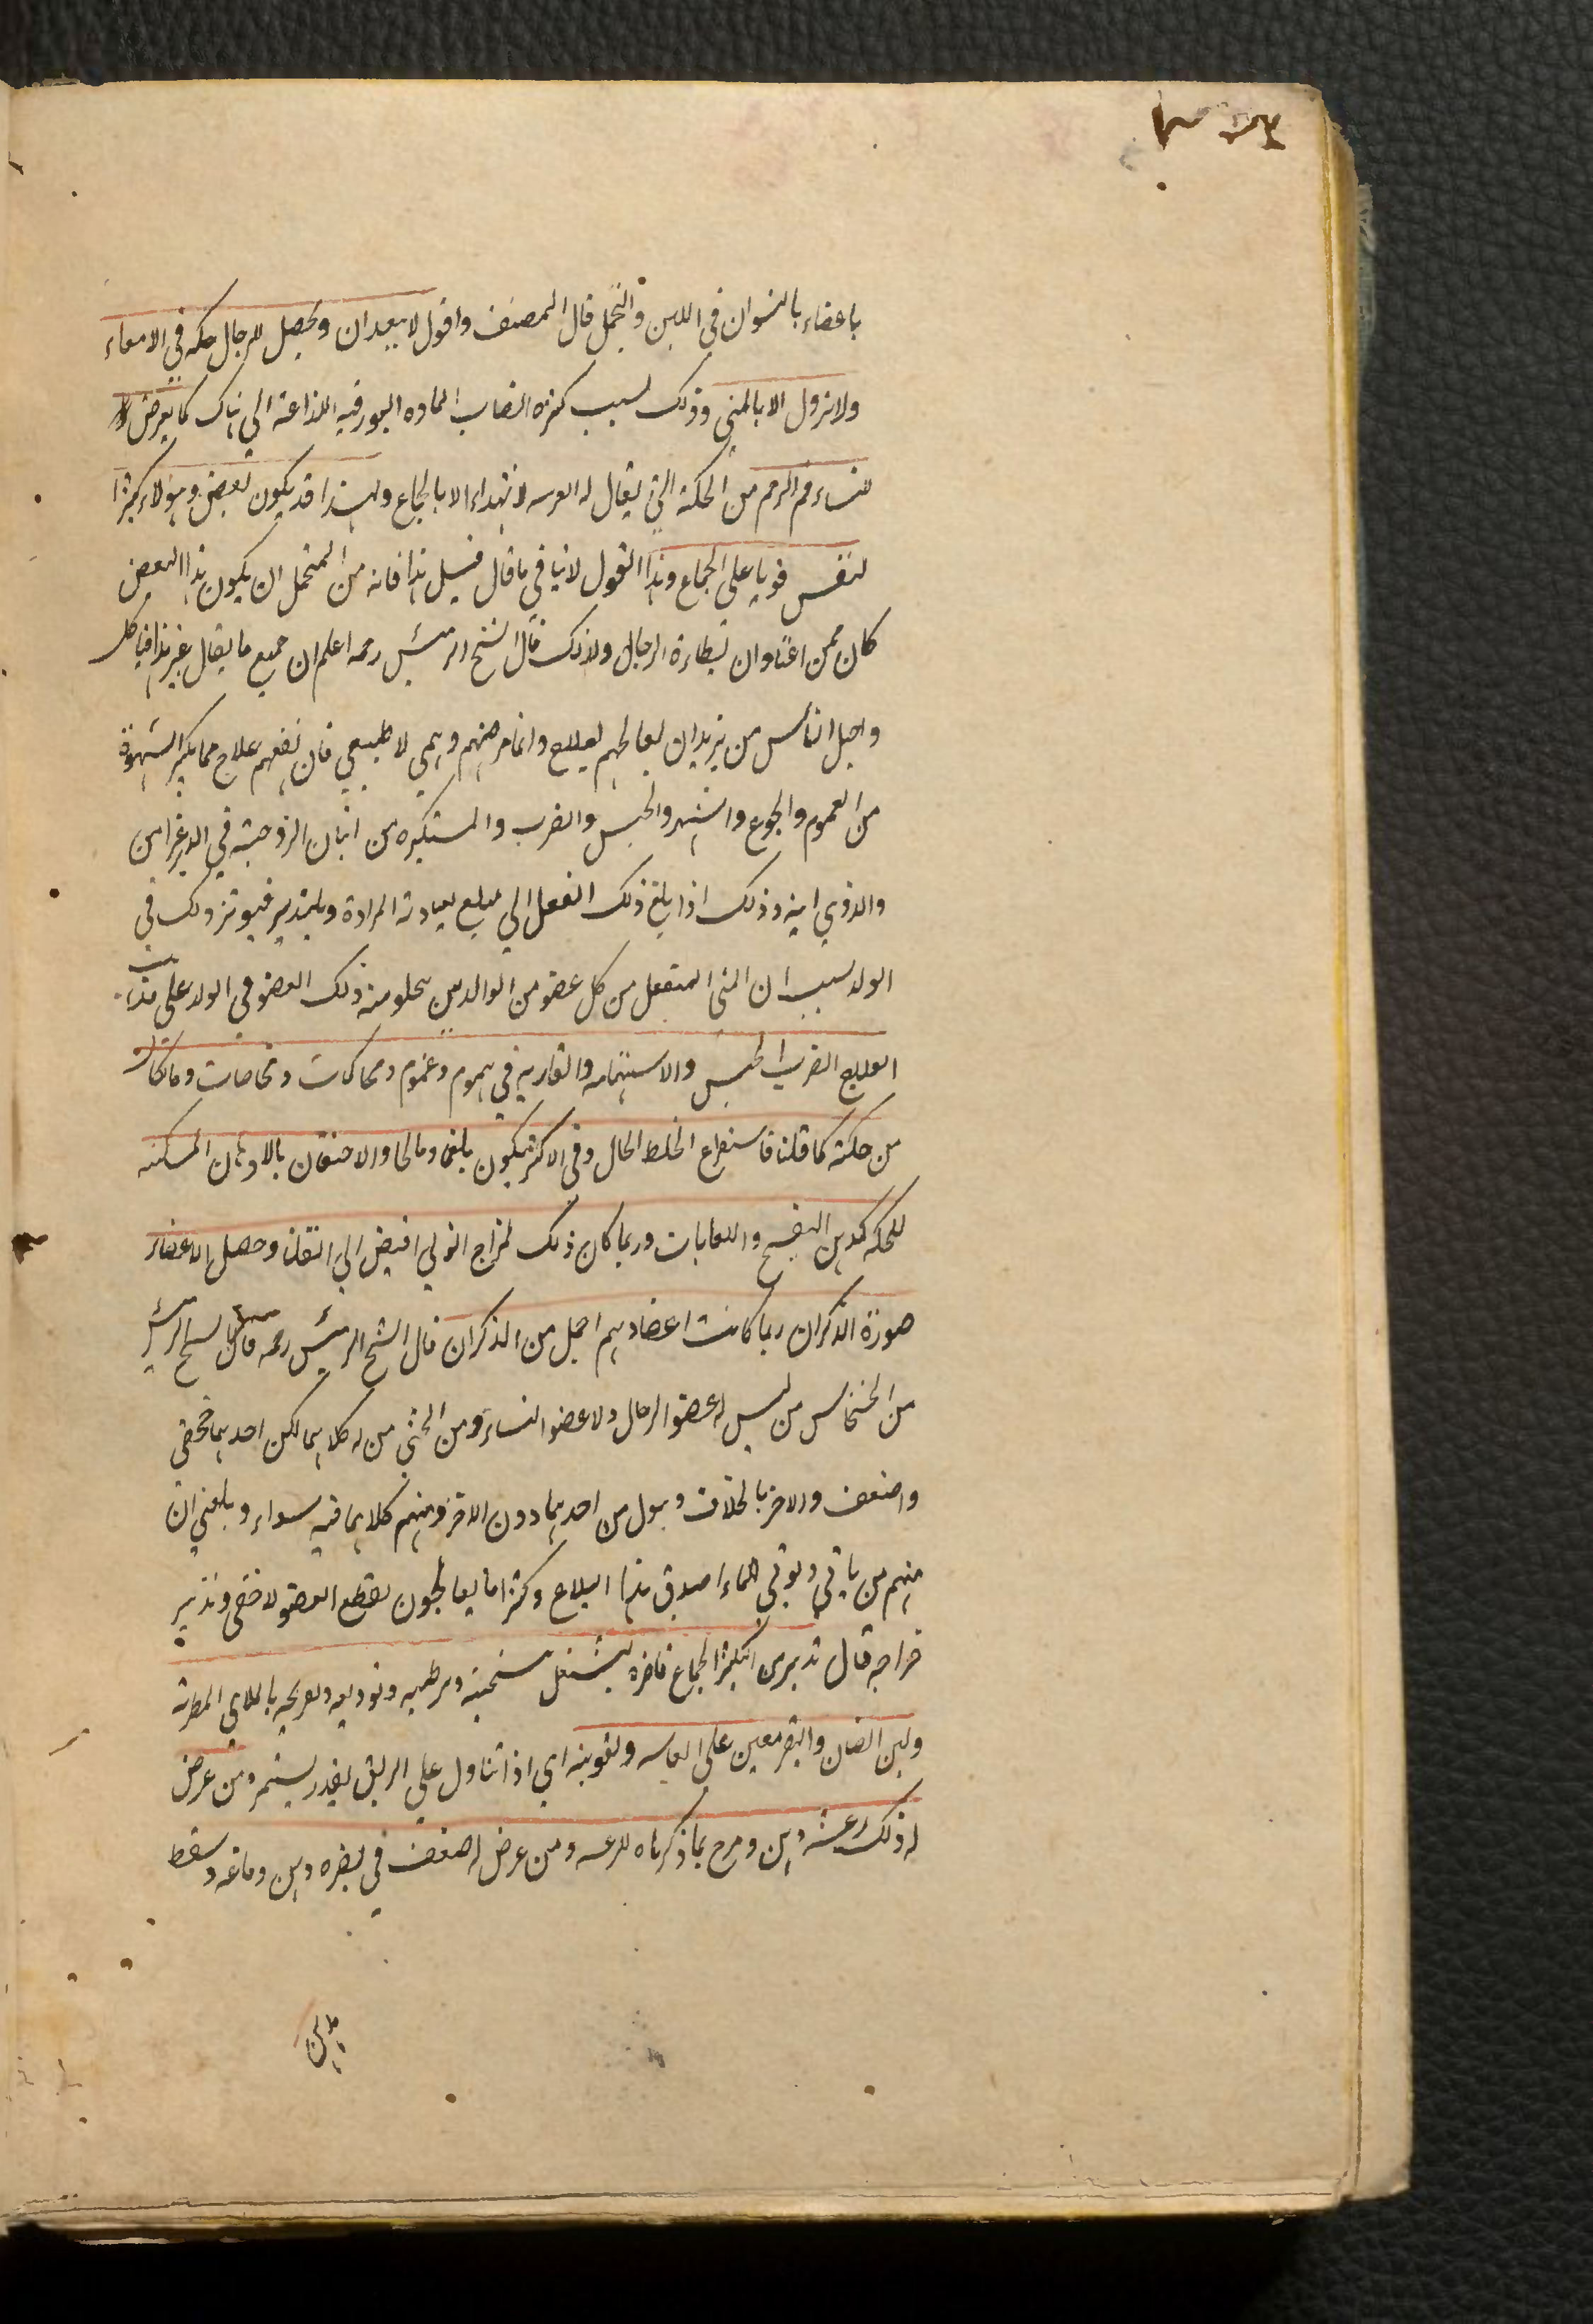 باعضاء بالنسوان في اللين والتخمل قال المصنف واقول لا يبعد ان ويحصل للرجال حكه في الامعاء
ولا تزول الا بالمني وذلك لسبب كثره انصاب الماده البورقيه اللذاعة الي هناك كما يعرض
للنساء فم الرحم من الحكة التي يقال له العرسه لا تهداء الا بالجماع ولهذا قد يكون بعض وهؤلاء كثيرا
لنفس قويا على الجماع وهذا القول لا ينافي ما قال قبيل هذا فانه من المتحمل ان يكون هذا البعض
كان ممن اعتاد ان رجال ولذلك قال الشيخ الرئيس رحمه اعلم ان جميع ما يقال غير هذا فباطل
واجهل الناس من يريد ان يعالجهم بعلاج وانما مرضهم وهمي لا طبيعي فان نفعهم علاج مما يكسر الشهوة
من الغموم والجوع والسهر والحبس والضرب والمستكره من اتيان الزوجته في الدبر
والذي ابنه وذلك اذا بلغ ذلك الفعل الي مبلغ في
الولد بسبب ان المني المنفعل من كل عضو من الوالدين منه ذلك العضو في الولد على هذا
العلاج الضرب الحبس والاستهانه في هموم وغموم ومحاكات ومخاصمات وما كان
من حكة كما قلنا فاستفراغ الخلط الحال وفي الاكثر يكون بلغما ومالحا والاحتقان بالادهان المسكنه
للحكه كدهن البنفسج واللعابات وربما كان ذلك لمزاج انثي افيض الي وحصل الاعضاء
صورة الذكران ربما كانت اعضاؤهم اجمل من الذكران قال الشيخ الرئيس رحمه قال الشيخ الرئيس
من الخنثا من ليس له عضو الرجال ولا عضو النساء ومن الخنثي من له كلاهما لكن احدهما خفي
واضعف والاخر بالخلاف ويبول من احدهما دون الاخر ومنهم كلاهما فيه سواء وبلغني ان
منهم من ياتي ويوتي فلما اصدق هذا البلاغ وكثيرا ما يعالجون بقطع العضو لاخفي وتدبير
خراجه قال تدبير من اكثر الجماع فاضره يشتغل بتسخينه وترطيبه وتوديعه وتفريحه بالملاهي المطربة
ولبن الضان والبقر معين على انعاشه وتقويته اي اذا تناول على الريق بقدر يستمر ومن عرض
له ذلك رعشه دهن ومرح بما ذكرناه للرعشه ومن عرض له ضعف في بصره دهن دماغه وسقط